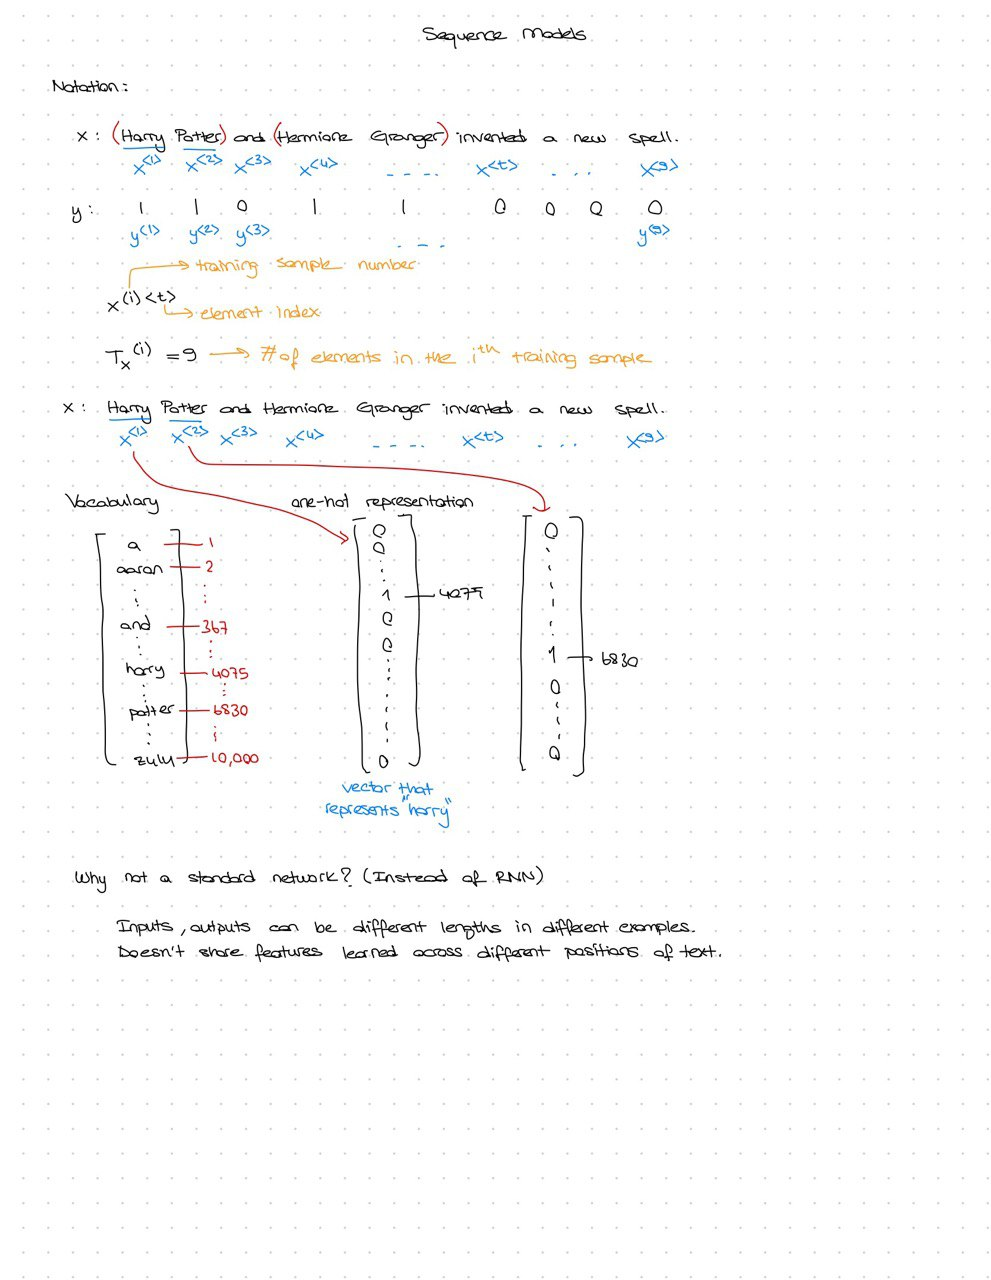 Sequence Models
Notation:
x: (Harry Potter) and (Hermione Granger) invented a new spell.
x<1> x<2> x<3> x<4> .... x<t> ... x<9>
y: 1 1 0 1 1 0 0 0 0
y<1> y<2> y<3> ... y<9>
→ training sample number
x(i)<t>
→ element index
Tx(i) = 9 → # of elements in the ith training sample
x: Harry Potter and Hermione Granger invented a new spell.
x<1> x<2> x<3> x<4> .... x<t> ... x<9>
Vocabulary
a 1
aaron 2
and 367
harry 4075
potter 6830
zulu 10,000
one-hot representation
0
0
1 4075
0
0
0
vector that
represents "harry"
0
1 6830
0
0
Why not a standard network? (Instead of RNN)
Inputs, outputs can be different lengths in different examples.
Doesn't share features learned across different positions of text.